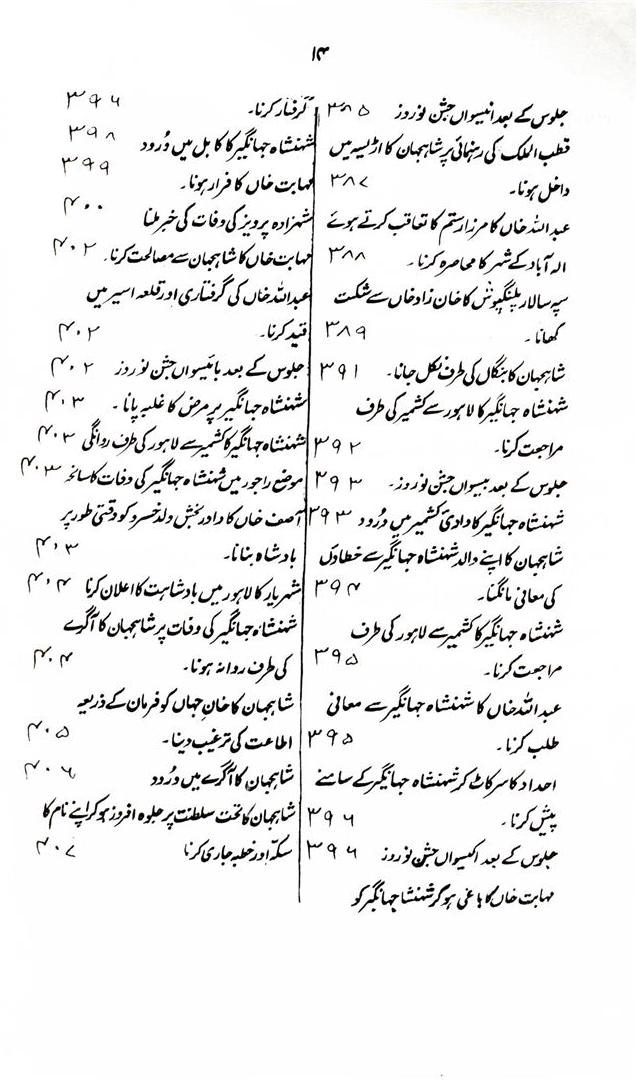 ۱۴
جلوس کے بعد انیسواں جشن نوروز ۳۸۵
قطب الملک کی رہنمائی پر شاہجہان کا اڑیسہ میں
داخل ہونا۔ ۳۸۷
عبداللہ خاں کا مرزا رستم کا تعاقب کرتے ہوئے
الہ آباد کے شہر کا محاصرہ کرنا۔ ۳۸۸
سپہ سالار پلنگپوش کا خان زاد خاں سے شکست
کھانا۔ ۳۸۹
شاہجہان کا بنگال کی طرف نکل جانا۔ ۳۹۱
شہنشاہ جہانگیر کا لاہور سے کشمیر کی طرف
مراجعت کرنا۔ ۳۹۲
جلوس کے بعد بیسواں جشن نوروز۔ ۳۹۳
شہنشاہ جہانگیر کا وادیٔ کشمیر میں وُرود ۳۹۳
شاہجہان کا اپنے والد شہنشاہ جہانگیر سے خطاؤں
کی معافی مانگنا۔ ۳۹۴
شہنشاہ جہانگیر کا کشمیر سے لاہور کی طرف
مراجعت کرنا۔ ۳۹۵
عبداللہ خاں کا شہنشاہ جہانگیر سے معافی
طلب کرنا۔ ۳۹۵
احداد کا سر کاٹ کر شہنشاہ جہانگیر کے سامنے
پیش کرنا۔ ۳۹۶
جلوس کے بعد اکیسواں جشن نوروز ۳۹۶
مہابت خاں کا باغی ہو کر شہنشاہ جہانگیر کو
گرفتار کرنا۔ ۳۹۶
شہنشاہ جہانگیر کا کابل میں وُرود ۳۹۸
مہابت خاں کا فرار ہونا۔ ۳۹۹
شہزادہ پرویز کی وفات کی خبر ملنا ۴۰۰
مہابت خاں کا شاہجہان سے مصالحت کرنا۔ ۴۰۲
عبداللہ خاں کی گرفتاری اور قلعہ اسیر میں
قید کرنا۔ ۴۰۲
جلوس کے بعد بائیسواں جشن نوروز ۴۰۲
شہنشاہ جہانگیر پر مرض کا غلبہ پانا۔ ۴۰۳
شہنشاہ جہانگیر کا کشمیر سے لاہور کی طرف روانگی ۴۰۳
موضع راجور میں شہنشاہ جہانگیر کی وفات کا سانحہ ۴۰۳
آصف خاں کا داور بخش ولد خسرو کو وقتی طور پر
بادشاہ بنانا۔ ۴۰۳
شہریار کا لاہور میں بادشاہت کا اعلان کرنا ۴۰۴
شہنشاہ جہانگیر کی وفات پر شاہجہان کا آگرے
کی طرف روانہ ہونا۔ ۴۰۴
شاہجہان کا خانِ جہاں کو فرمان کے ذریعہ
اطاعت کی ترغیب دینا۔ ۴۰۵
شاہجہان کا آگرے میں وُرود ۴۰۶
شاہجہان کا تخت سلطنت پر جلوہ افروز ہو کر اپنے نام کا
سکّہ اور خطبہ جاری کرنا ۴۰۷